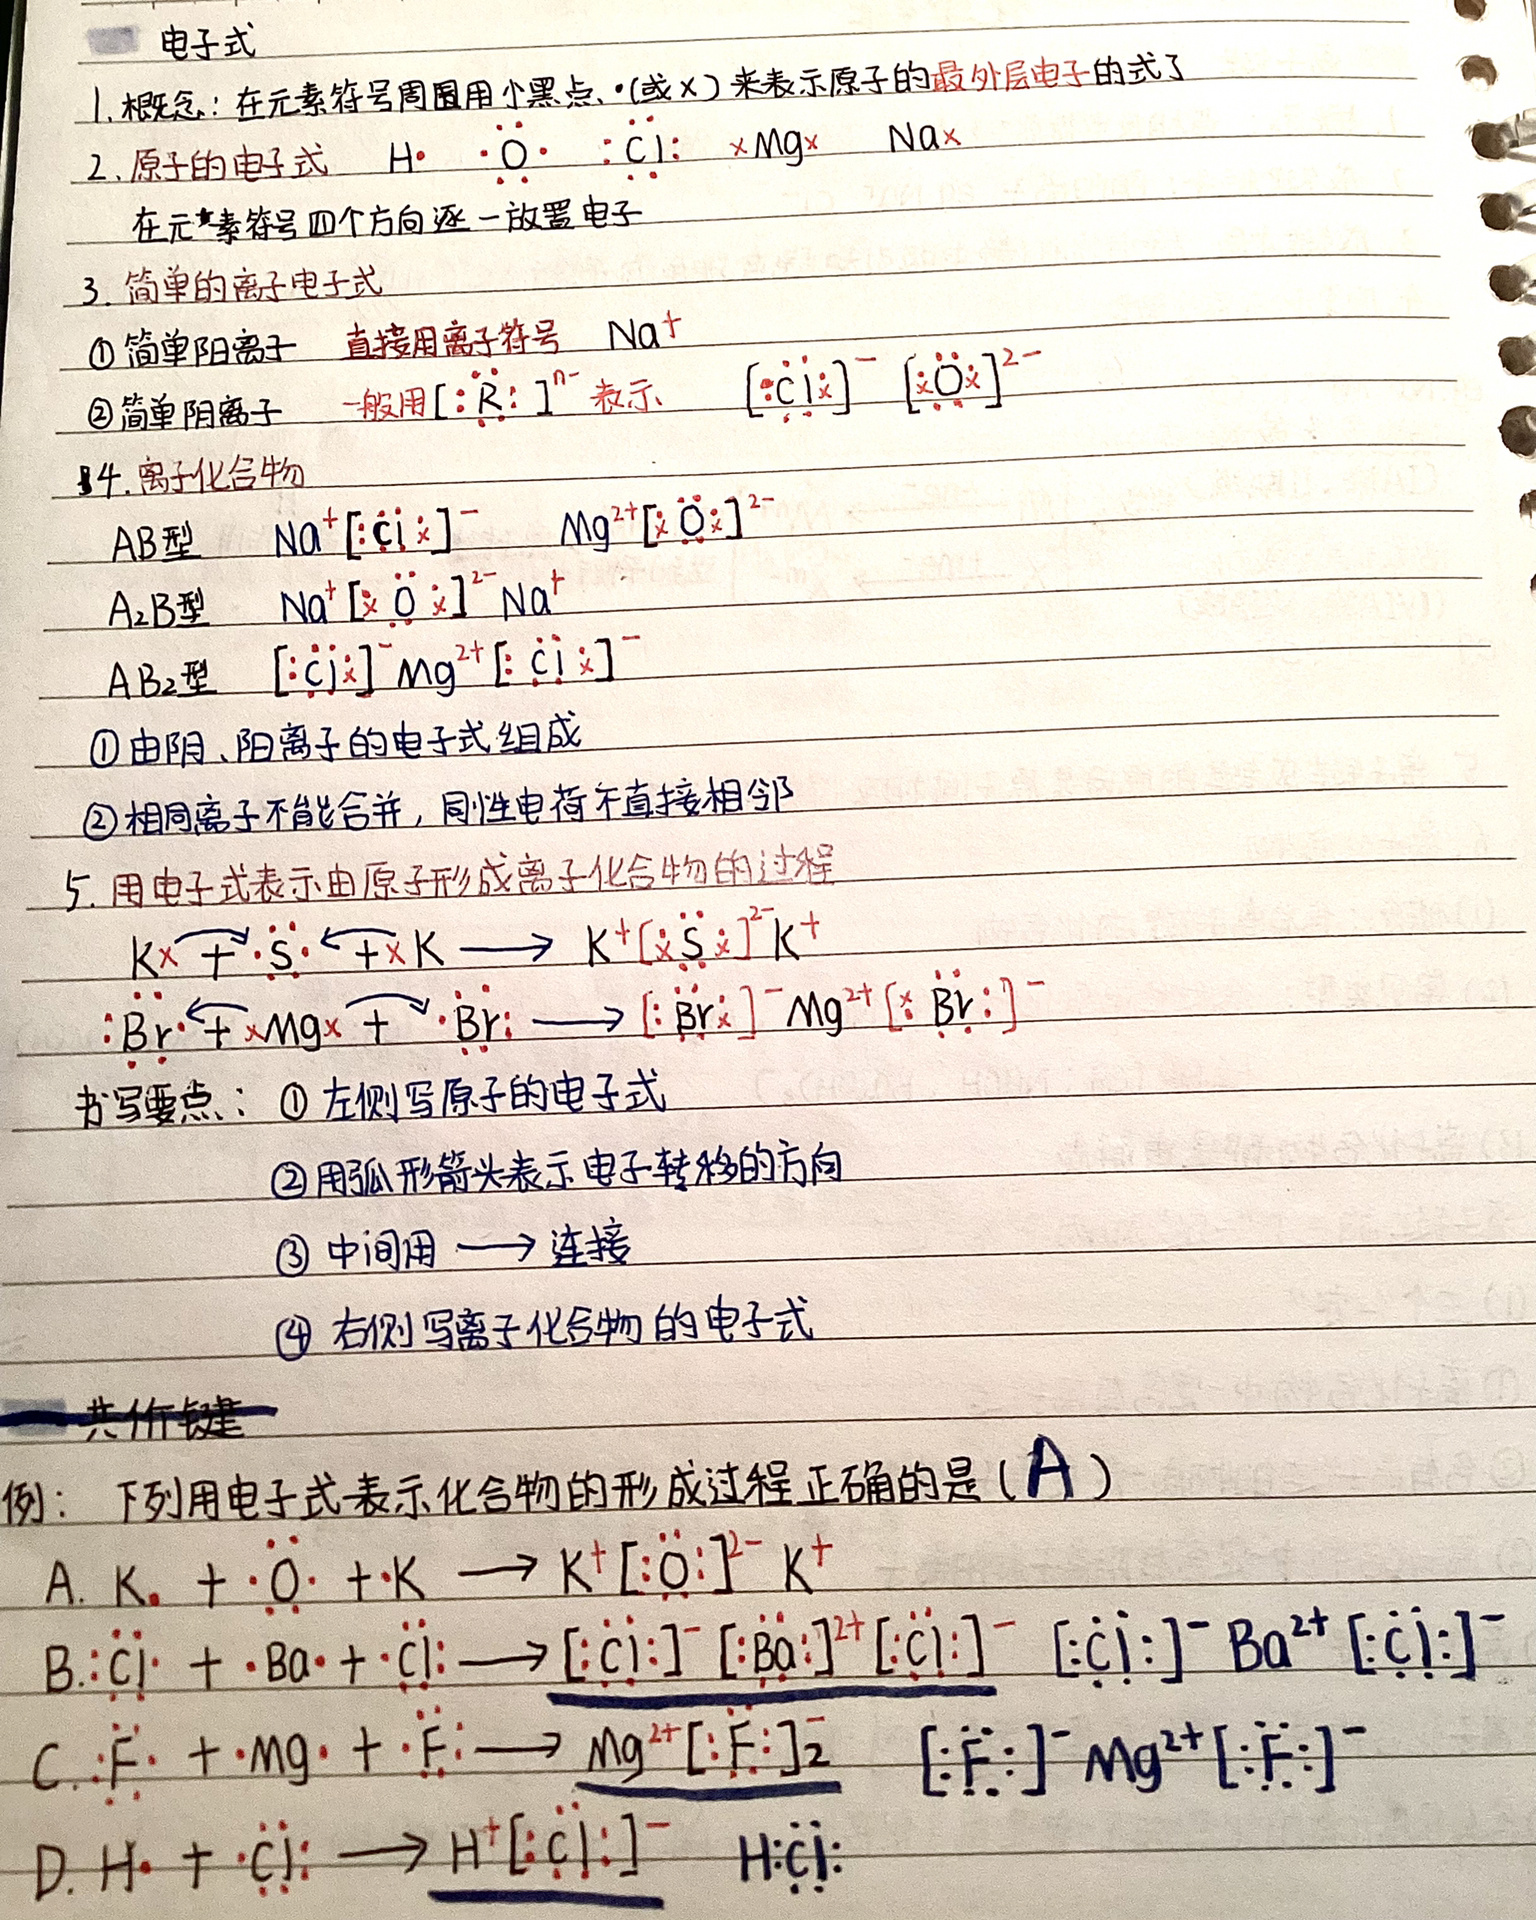 电子式
1. 概念：在元素符号周围用小黑点·(或×)来表示原子的最外层电子的式了
2. 原子的电子式 H· ·Ö· :Cl: ×Mg× Na×
在元素符号四个方向逐一放置电子
3. 简单的离子电子式
①简单阳离子 直接用离子符号 Na⁺
②简单阴离子 一般用[:R:]ⁿ⁻表示 [:Cl×]⁻ [×O×]²⁻
4. 离子化合物
AB型 Na⁺[:Cl×]⁻ Mg²⁺[×O×]²⁻
A₂B型 Na⁺[×O×]²⁻Na⁺
AB₂型 [:Cl×]⁻Mg²⁺[:Cl×]⁻
①由阴、阳离子的电子式组成
②相同离子不能合并，同性电荷不直接相邻
5. 用电子式表示由原子形成离子化合物的过程
K× + ·S· + ×K ⟶ K⁺[×S×]²⁻K⁺
:Br· + ×Mg× + ·Br: ⟶ [:Br×]⁻Mg²⁺[×Br:]⁻
书写要点：①左侧写原子的电子式
②用弧形箭头表示电子转移的方向
③中间用 ⟶ 连接
④右侧写离子化合物的电子式
共价键
例：下列用电子式表示化合物的形成过程正确的是(A)
A. K· + ·O· + ·K ⟶ K⁺[:O:]²⁻K⁺
B. :Cl· + ·Ba· + ·Cl: ⟶ [:Cl:]⁻[:Ba:]²⁺[:Cl:]⁻ [:Cl:]⁻Ba²⁺[:Cl:]⁻
C. :F· + ·Mg· + ·F: ⟶ Mg²⁺[:F:]₂⁻ [:F:]⁻Mg²⁺[:F:]⁻
D. H· + ·Cl: ⟶ H⁺[:Cl:]⁻ H:Cl: